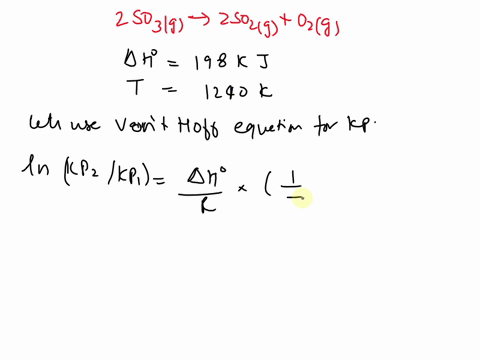 2SO3(g) → 2SO2(g) + O2(g)
ΔH° = 198 KJ
T = 1240 K
use Von't Hoff equation for KP.
ln (KP2/KP1) = ΔH°/R × ( 1/